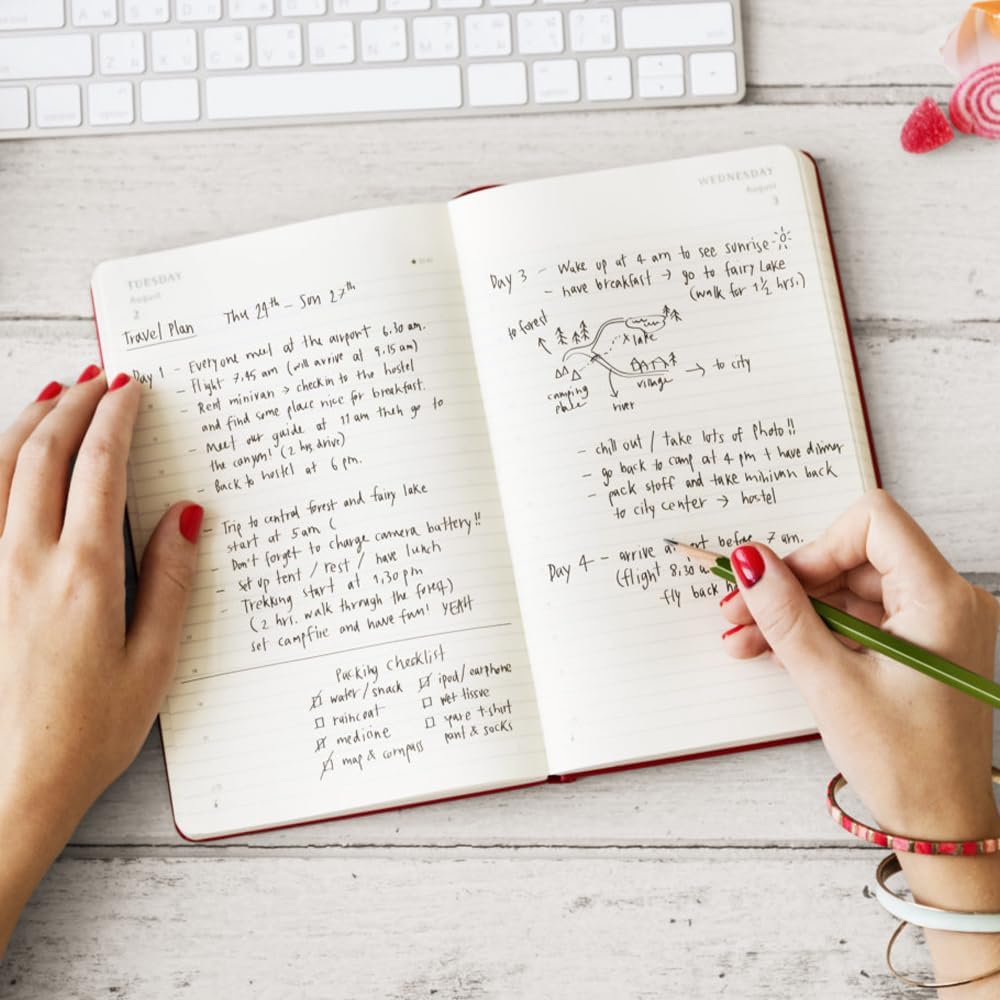 TUESDAY
August
2
Travel Plan Thu 24th – Sun 27th
Day 1 – Everyone meet at the airport 6.30 am.
– Flight 7.45 am (will arrive at 9.15 am)
– Rent minivan → checkin to the hostel
and find some place nice for breakfast.
– Meet our guide at 11 am then go to
the canyon! (2 hrs. drive)
– Back to hostel at 6 pm.
– Trip to central forest and fairy lake
start at 5 am (
– Don't forget to charge camera battery!!
– set up tent / rest / have lunch
– Trekking start at 1.30 pm
(2 hrs. walk through the forest)
set campfire and have fun! YEAH
Packing Checklist
water / snack
raincoat
medicine
map & compass
ipod / earphone
wet tissue
spare t-shirt
pant & socks
WEDNESDAY
August
3
Day 3 – Wake up at 4 am to see sunrise
– have breakfast → go to fairy Lake
(walk for 1½ hrs.)
to forest
x lake
village
→ to city
camping
place
river
– chill out / take lots of photo!!
– go back to camp at 4 pm + have dinner
– pack stuff and take minivan back
to city center → hostel
Day 4 – arrive before 7 am.
(flight 8.30
fly back